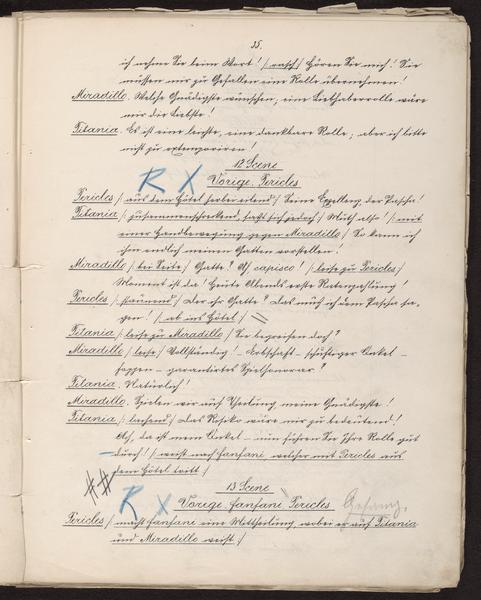 35.
ich nehme Sie beim Wort! /:rasch:/ Hören Sie mich! Sie
müssen mir zu Gefallen eine Rolle übernehmen!
Miradillo. Welche Gnädigste wünschen, eine Liebhaberrolle wäre
mir die Liebste!
Titania. Es ist eine leichte, eine dankbare Rolle; aber ich bitte
nicht zu extemporiren!
12 Scene
R X
Vorige. Pericles.
Pericles /: aus dem Hôtel herbei eilend:/ Seine Exzellenz, der Pascha!
Titania /: zusammenschreckend, faßt sich jedoch:/ Muth also! /: mit
einer Handbewegung gegen Miradillo:/ So kann ich
ihm endlich meinen Gatten vorstellen!
Miradillo /: bei Seite:/ Gatte? Ah capisco! /: leise zu Pericles:/
Moment ist da! Heute Abends erste Ratenzahlung!
Pericles /: staunend:/ Der ihr Gatte? Das muß ich dem Pascha sa-
gen! /: ab ins Hôtel:/
Titania /: leise zu Miradillo:/ Sie begreifen doch?
Miradillo /: leise:/ Vollständig! – Erbschaft – schuftiger Onkel –
foppen – garantirtes Spielhonorar?
Titania. Natürlich!
Miradillo. Spielen wir auf Theilung, meine Gnädigste!
Titania /: lachend:/ Das Risiko wäre mir zu bedeutend!
Ah, da ist mein Onkel – nun führen Sie Ihre Rolle gut
durch! /: weist nach Fanfani welcher mit Pericles aus
dem Hôtel tritt:/
13 Scene
R X
Vorige. Fanfani Pericles. Gesang.
Pericles /: macht Fanfani eine Mittheilung, wobei er auf Titania
und Miradillo weist:/